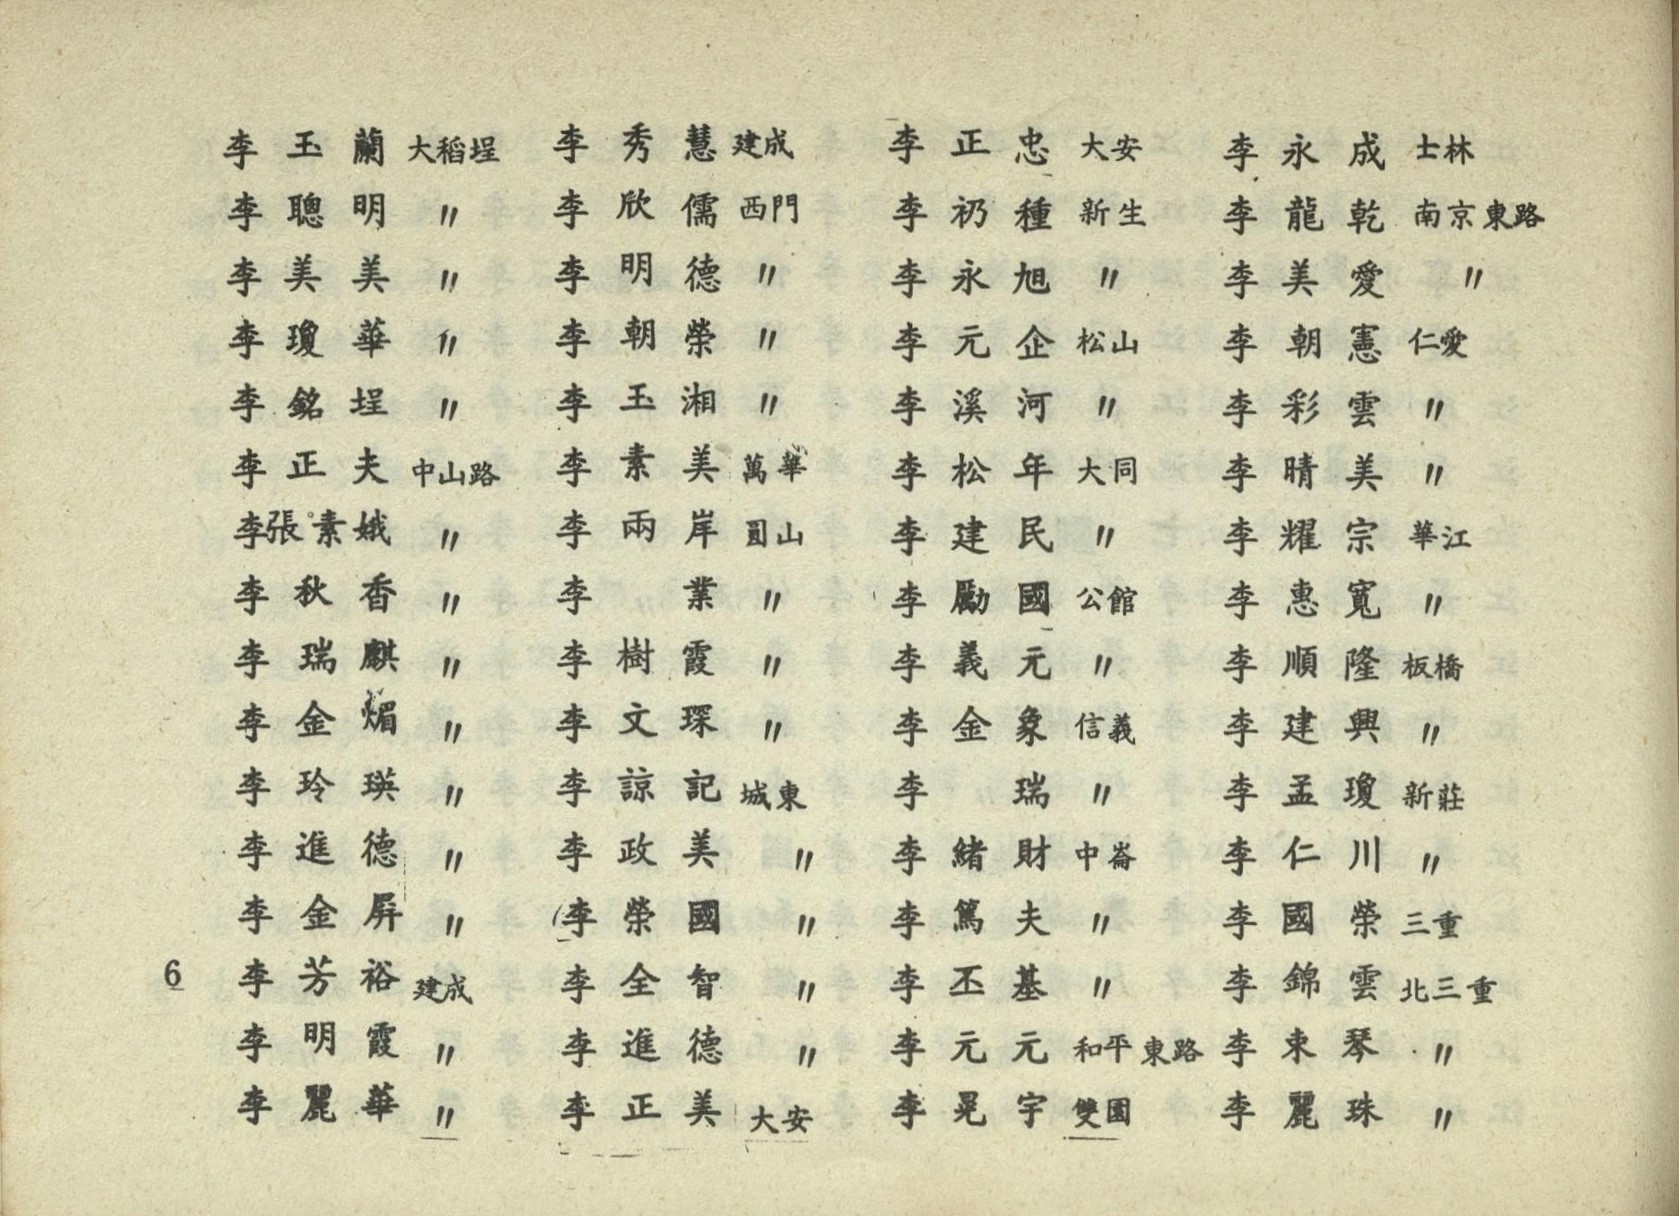 李玉蘭 大稻埕
李聰明 〃
李美美 〃
李瓊華 〃
李銘埕 〃
李正夫 中山路
李張素娥 〃
李秋香 〃
李瑞麒 〃
李金媚 〃
李玲瑛 〃
李進德 〃
李金屏 〃
李芳裕 建成
李明霞 〃
李麗華 〃
李秀慧 建成
李欣儒 西門
李明德 〃
李朝榮 〃
李玉湘 〃
李素美 萬華
李兩岸 圓山
李業 〃
李樹霞 〃
李文琛 〃
李諒記 城東
李政美 〃
李榮國 〃
李全智 〃
李進德 〃
李正美 大安
李正忠 大安
李礽種 新生
李永旭 〃
李元企 松山
李溪河 〃
李松年 大同
李建民 〃
李勵國 公館
李義元 〃
李金象 信義
李瑞 〃
李緒財 中崙
李篤夫 〃
李丕基 〃
李元元 和平東路
李晃宇 雙園
李永成 士林
李龍乾 南京東路
李美愛 〃
李朝憲 仁愛
李彩雲 〃
李晴美 〃
李耀宗 華江
李惠寬 〃
李順隆 板橋
李建興 〃
李孟瓊 新莊
李仁川 〃
李國榮 三重
李錦雲 北三重
李束琴 〃
李麗珠 〃
6